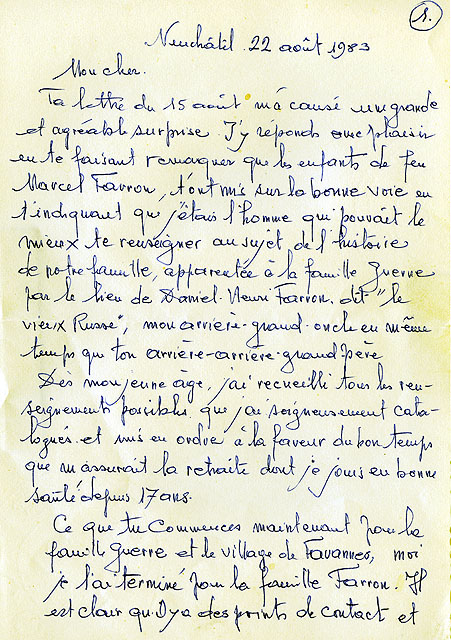 1.
Neuchâtel. 22 août 1983
Mon cher.
Ta lettre du 15 août m'a causé une grande
et agréable surprise. J'y réponds avec plaisir
en te faisant remarquer que les enfants de feu
Marcel Farron, t'ont mis sur la bonne voie en
t'indiquant que j'étais l'homme qui pouvait le
mieux te renseigner au sujet de l'histoire
de notre famille, apparentée à la famille Guerne
par le lien de Daniel-Henri Farron. dit "le
vieux Russe", mon arrière-grand-oncle en même
temps que ton arrière-arrière-grand père
Dès mon jeune âge, j'ai recueilli tous les ren-
seignements possibles que j'ai soigneusement cata-
logués et mis en ordre à la faveur du bon temps
que m'assurait la retraite dont je jouis en bonne
santé depuis 17 ans.
Ce que tu commences maintenant pour la
famille Guerre et le village de Tavannes, moi
je l'ai terminé pour la famille Farron. Il
est clair qu'il y a des points de contact et